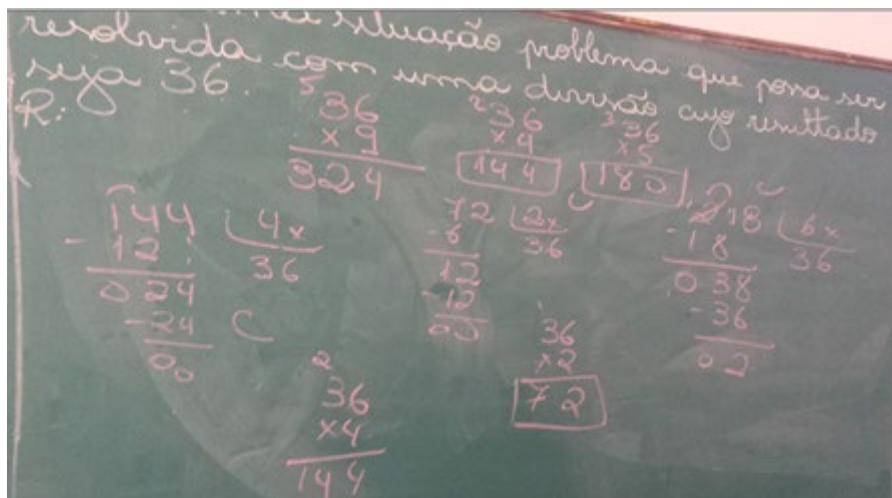 uma situação problema que possa ser
resolvida com uma divisão cujo resultado
seja 36.
R:
5
36
x9
324
2
36
x4
144
3
36
x5
180
144 4x
-12 36
024
-24 C
00
72 2x
-6 36
12
-12
00
218 6x
-18 36
038
-36
02
2
36
x4
144
1
36
x2
72